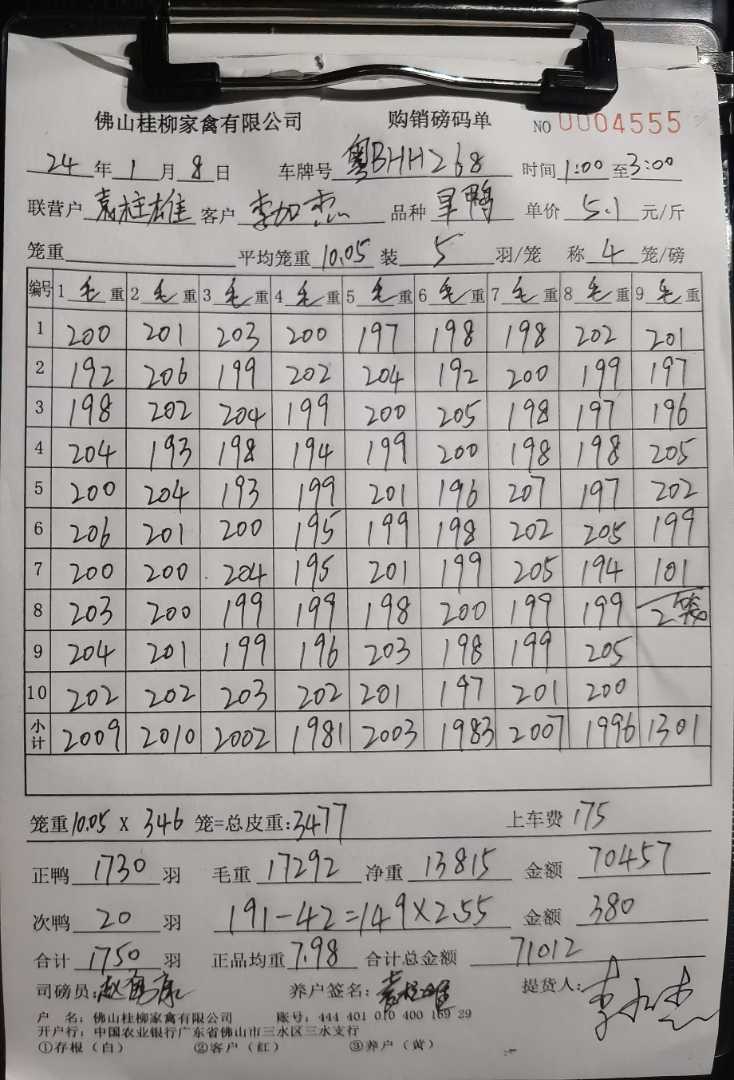 佛山桂柳家禽有限公司 购销磅码单 NO 0004555
24 年 1 月 8 日 车牌号 粤BHH268 时间 1:00 至 3:00
联营户 袁柱雄 客户 李加杰 品种 旱鸭 单价 5.1 元/斤
笼重 平均笼重 10.05 装 5 羽/笼 称 4 笼/磅
编号 1 毛 重 2 毛 重 3 毛 重 4 毛 重 5 毛 重 6 毛 重 7 毛 重 8 毛 重 9 毛 重
1 200 201 203 200 197 198 198 202 201
2 192 206 199 202 204 192 200 199 197
3 198 202 204 199 200 205 198 197 196
4 204 193 198 194 199 200 198 198 205
5 200 204 193 199 201 196 207 197 202
6 206 201 200 195 199 198 202 205 199
7 200 200 204 195 201 199 205 194 101
8 203 200 199 199 198 200 199 199 2笼
9 204 201 199 196 203 198 199 205
10 202 202 203 202 201 197 201 200
小计 2009 2010 2002 1981 2003 1983 2007 1996 1301
笼重 10.05 X 346 笼=总皮重:3477 上车费 175
正鸭 1730 羽 毛重 17292 净重 13815 金额 70457
次鸭 20 羽 191-42=149×2.55 金额 380
合计 1750 羽 正品均重 7.98 合计总金额 71012
司磅员: 养户签名: 袁柱雄 提货人: 李加杰
户 名: 佛山桂柳家禽有限公司 账号: 444 401 010 400 169 29
开户行: 中国农业银行广东省佛山市三水区三水支行
①存根(白) ②客户(红) ③养户(黄)